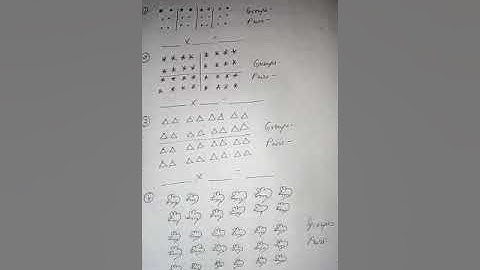 ① Groups-
Pairs-
___ x ___ = ___
② Groups-
Pairs-
___ x ___ = ___
③ Groups-
Pairs-
___ x ___ = ___
④ Groups-
Pairs-